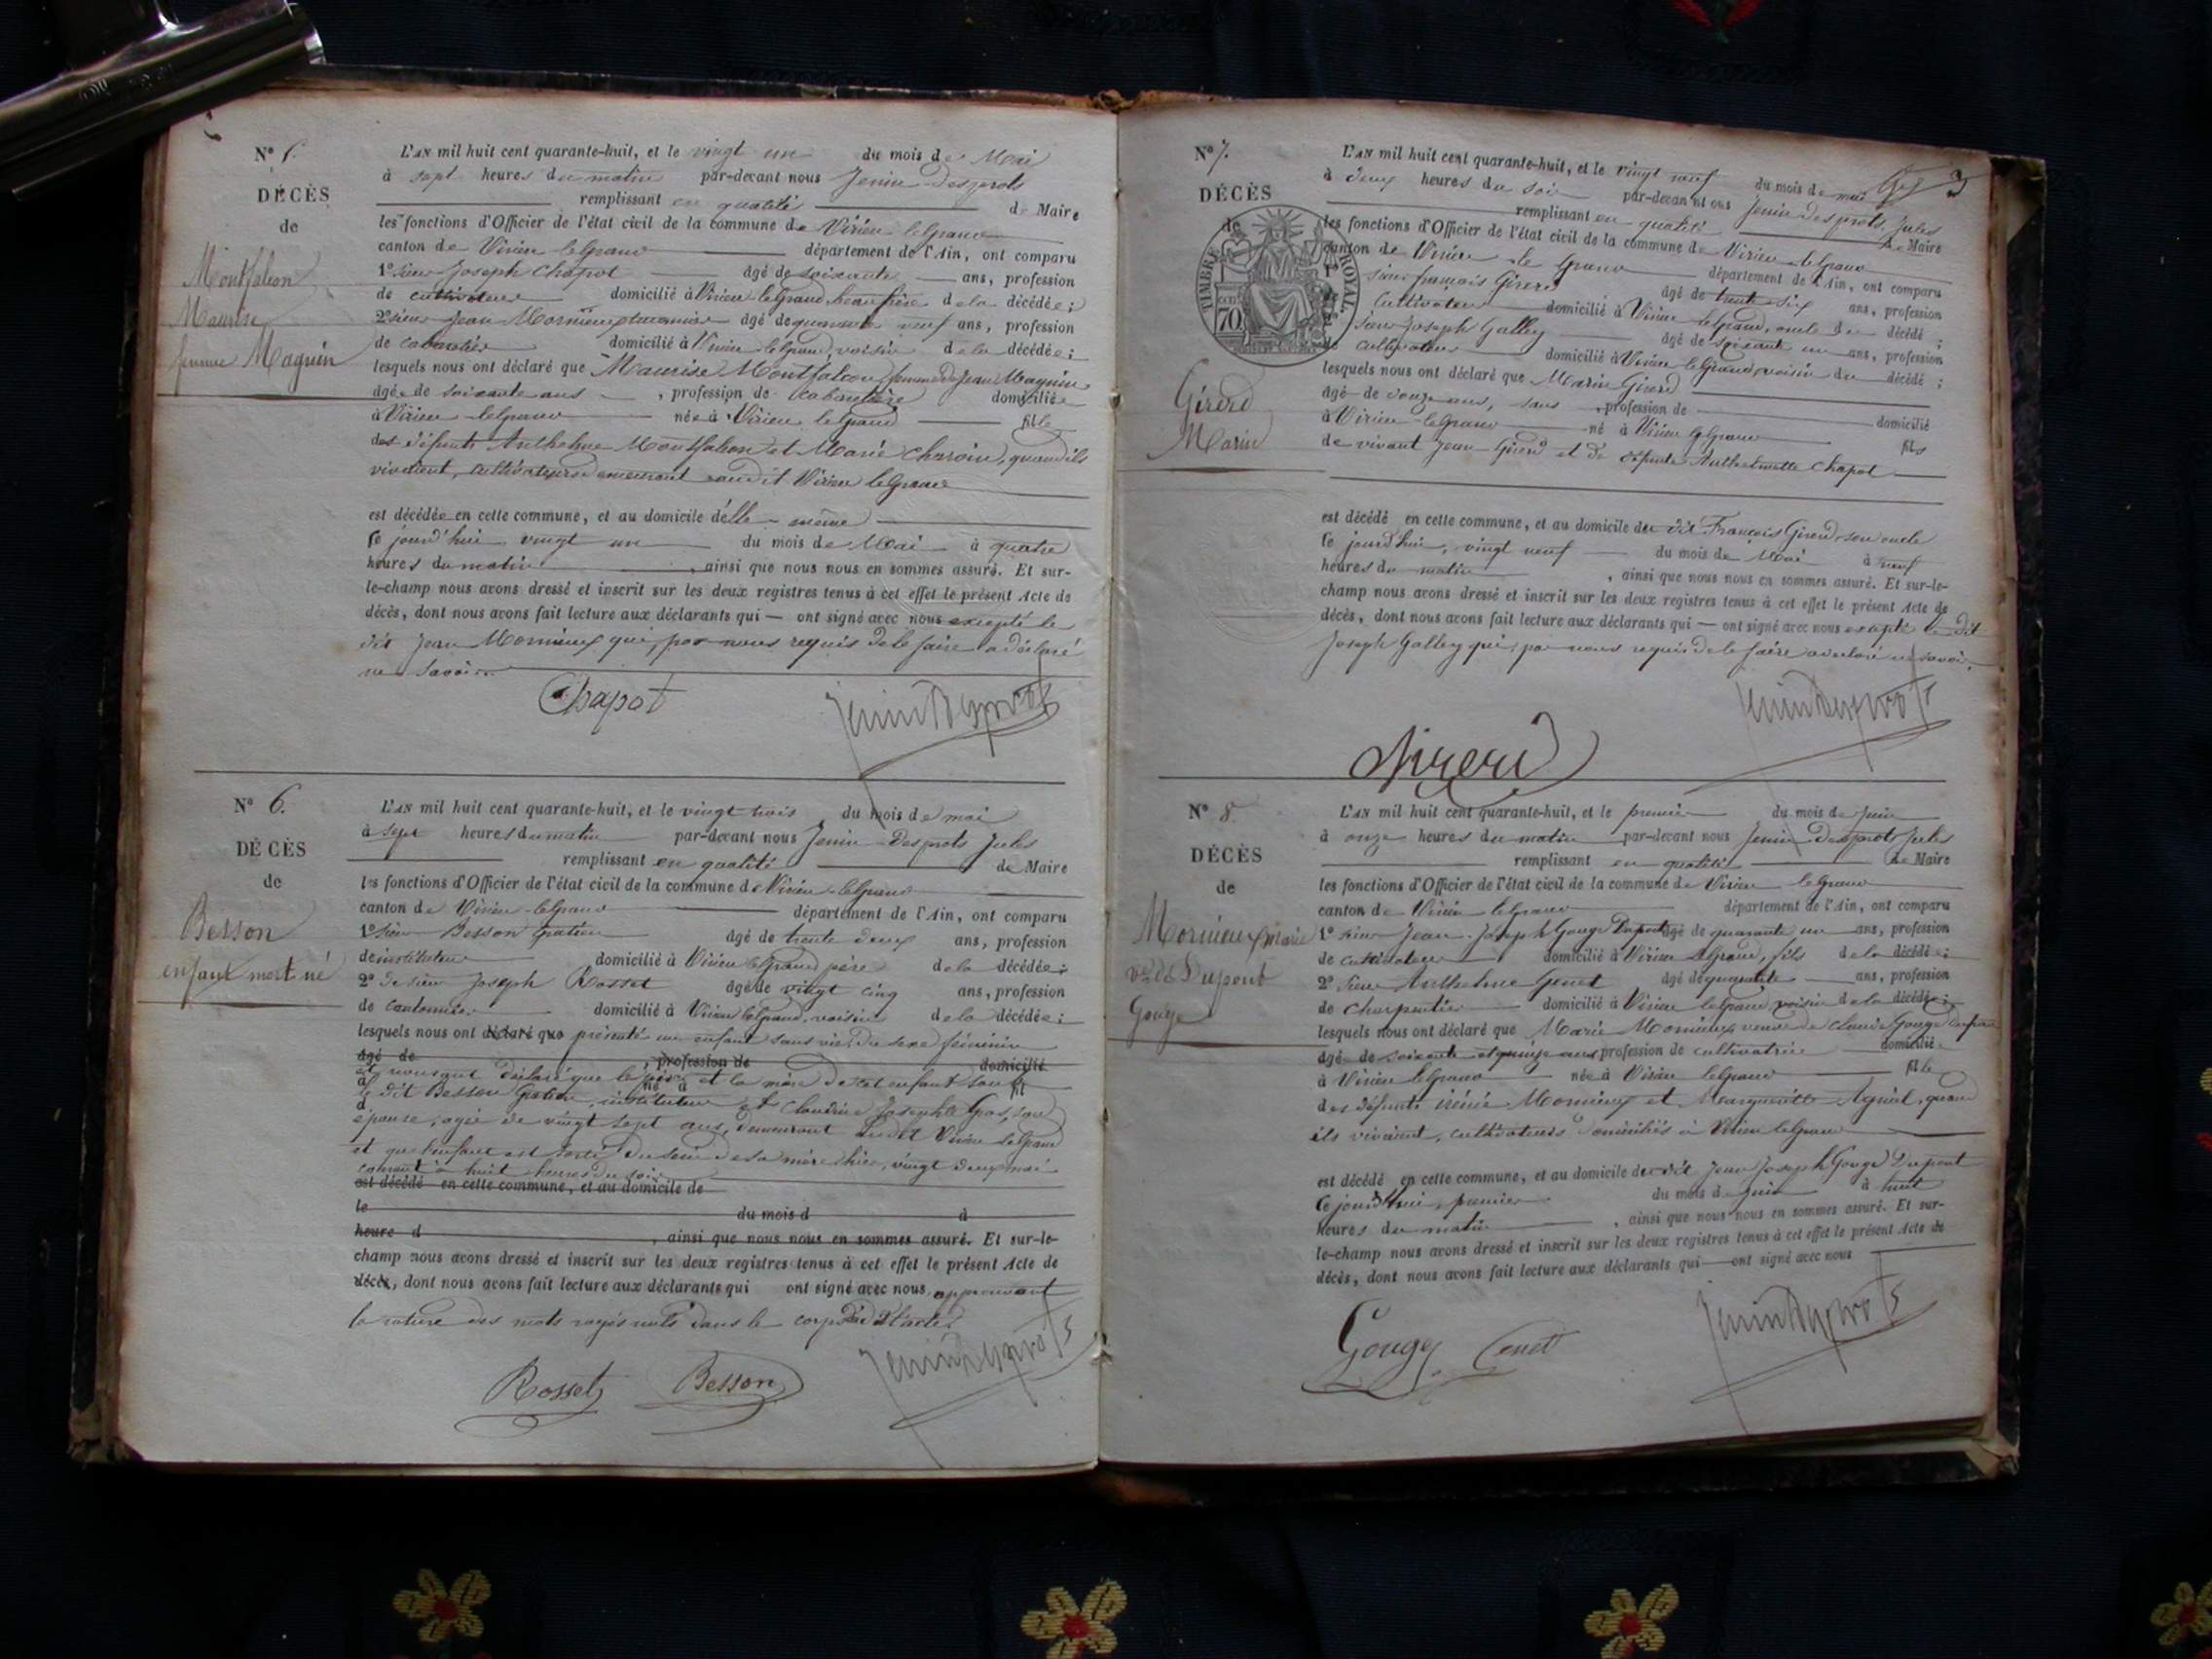 N° 5.
DÉCÈS
de
Montfalcon
Maurise
femme Magnin
L'AN mil huit cent quarante-huit, et le vingt un du mois de Mai
à sept heures du matin par-devant nous Jenin Desprots
remplissant en qualité de Maire
les fonctions d'Officier de l'état civil de la commune de Virieu le Grand
canton de Virieu le Grand département de l'Ain, ont comparu
1° sieur Joseph Chapot âgé de soixante ans, profession
de cultivateur domicilié à Virieu le Grand, beau frère de la décédée;
2° sieur Jean Mornieux âgé de quarante neuf ans, profession
de cabaretier domicilié à Virieu le Grand, voisin de la décédée;
lesquels nous ont déclaré que Maurise Montfalcon, femme de Jean Magnin
âgée de soixante ans, profession de cabaretière domiciliée
à Virieu le grand née à Virieu le Grand fille
des défunts Anthelme Montfalcon et Marie Charoin, quand ils
vivaient, cultivateurs demeurant audit Virieu le Grand
est décédée en cette commune, et au domicile d'elle même
ce jourd'hui vingt un du mois de Mai à quatre
heures du matin, ainsi que nous nous en sommes assuré. Et sur-
le-champ nous avons dressé et inscrit sur les deux registres tenus à cet effet le présent Acte de
décès, dont nous avons fait lecture aux déclarants qui — ont signé avec nous excepté le
dit Jean Mornieux qui, par nous requis de le faire a déclaré
ne savoir.
Chapot Jenin Desprots
N° 6.
DÉCÈS
de
Besson
enfant mort né
L'AN mil huit cent quarante-huit, et le vingt trois du mois de mai
à sept heures du matin par-devant nous Jenin Desprots Jules
remplissant en qualité de Maire
les fonctions d'Officier de l'état civil de la commune de Virieu le Grand
canton de Virieu le Grand département de l'Ain, ont comparu
1° sieur Besson Gratien âgé de trente deux ans, profession
de instituteur domicilié à Virieu le Grand père de la décédée;
2° de sieur Joseph Rosset âgé de vingt cinq ans, profession
de cantonnier domicilié à Virieu le Grand, voisin de la décédée;
lesquels nous ont déclaré que présenté un enfant sans vie, du sexe féminin
âgé de , profession de domicilié
et nous ont déclaré que le père et la mère de cet enfant sont
à né à fil
le dit Besson Gratien, instituteur et Claudine Josephte Gros, son
d
épouse, agée de vingt sept ans, demeurant audit Virieu le Grand
et que l'enfant est sorti du sein de sa mère hier, vingt deux mai
courant à huit heures du soir
est décédé en cette commune, et au domicile de
le du mois d à
heure d , ainsi que nous nous en sommes assuré. Et sur-le-
champ nous avons dressé et inscrit sur les deux registres tenus à cet effet le présent Acte de
décès, dont nous avons fait lecture aux déclarants qui ont signé avec nous, approuvant
la rature des mots rayés nuls dans le corps dudit acte.
Rosset Besson Jenin Desprots
3
N° 7.
DÉCÈS
de
TIMBRE ROYAL
70
Girerd
Marin
L'AN mil huit cent quarante-huit, et le vingt neuf du mois de mai
à deux heures du soir par-devant nous Jenin Desprots, Jules
remplissant en qualité de Maire
les fonctions d'Officier de l'état civil de la commune de Virieu le grand
canton de Virieu le Grand département de l'Ain, ont comparu
1° sieur françois Girerd âgé de trente six ans, profession
cultivateur domicilié à Virieu le Grand, oncle du décédé;
sieur Joseph Galley âgé de soixante un ans, profession
de cultivateur domicilié à Virieu le Grand, voisin du décédé;
lesquels nous ont déclaré que Marin Girerd
âgé de douze ans, sans profession de domicilié
à Virieu le Grand né à Virieu le Grand fils
de vivant Jean Girerd et de défunte Anthelmette Chapot
est décédé en cette commune, et au domicile du dit François Girerd, son oncle
ce jourd'hui, vingt neuf du mois de Mai à neuf
heures du matin, ainsi que nous nous en sommes assuré. Et sur-le-
champ nous avons dressé et inscrit sur les deux registres tenus à cet effet le présent Acte de
décès, dont nous avons fait lecture aux déclarants qui — ont signé avec nous excepté le dit
Joseph Galley qui, par nous requis de le faire a déclaré ne savoir.
Jenin Desprots
Girerd
N° 8.
DÉCÈS
de
Mornieux Marie
ve de Dupont
Gouge
L'AN mil huit cent quarante-huit, et le premier du mois de Juin
à onze heures du matin par-devant nous Jenin Desprots Jules
remplissant en qualité de Maire
les fonctions d'Officier de l'état civil de la commune de Virieu le Grand
canton de Virieu le Grand département de l'Ain, ont comparu
1° sieur Jean Joseph Gouge Dupont âgé de quarante un ans, profession
de cultivateur domicilié à Virieu le Grand, fils de la décédée;
2° sieur Anthelme Genet âgé de quarante ans, profession
de charpentier domicilié à Virieu le Grand, voisin de la décédée;
lesquels nous ont déclaré que Marie Mornieux, veuve de Claude Gouge Dupont
âgée de soixante et quinze ans, profession de cultivatrice domiciliée
à Virieu le Grand née à Virieu le Grand fille
des défunts Mornieux et Marguerite, quand
ils vivaient, cultivateurs domiciliés à Virieu le Grand
est décédé en cette commune, et au domicile du dit Jean Joseph Gouge Dupont
ce jourd'hui, premier du mois de juin à huit
heures du matin, ainsi que nous nous en sommes assuré. Et sur-
le-champ nous avons dressé et inscrit sur les deux registres tenus à cet effet le présent Acte de
décès, dont nous avons fait lecture aux déclarants qui — ont signé avec nous
Gouge Genet Jenin Desprots